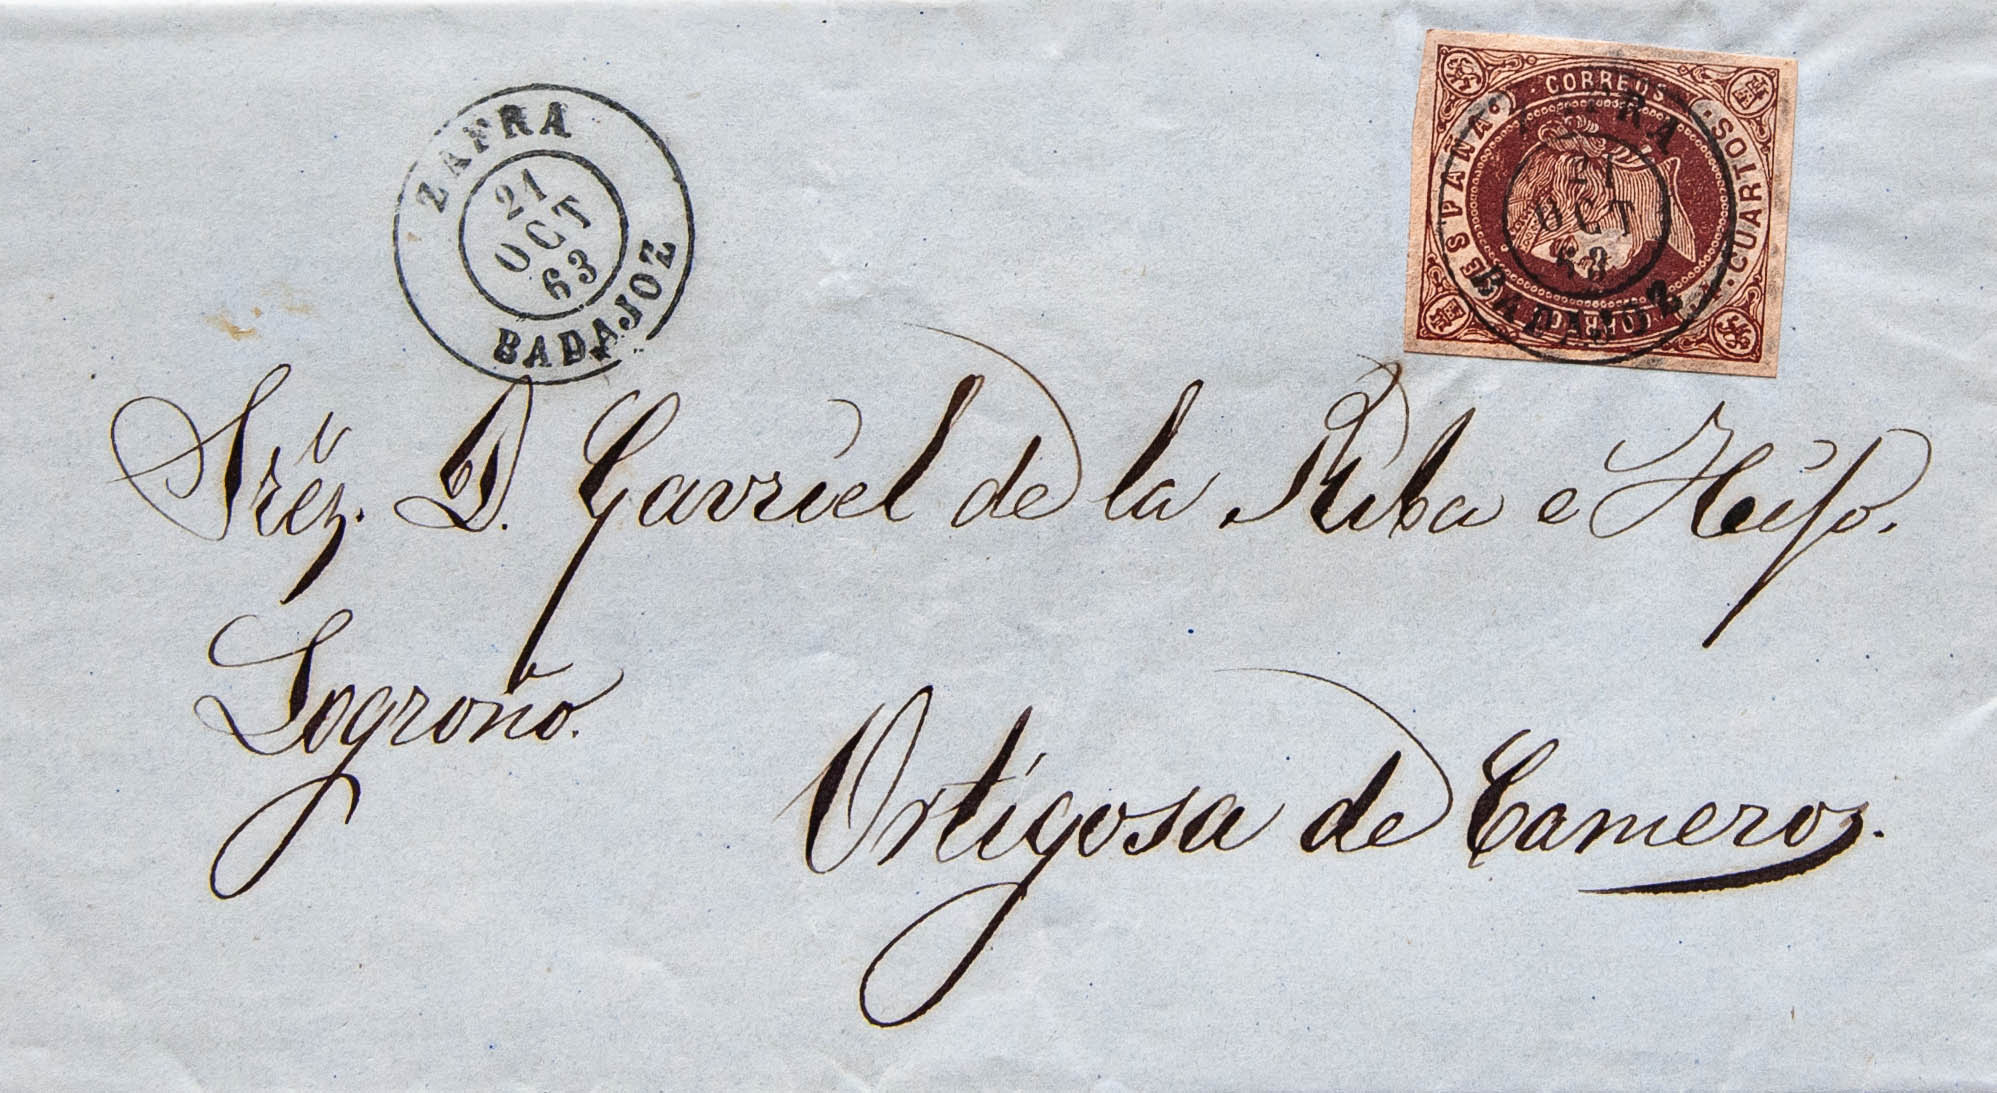 ZAFRA
21
OCT
63
BADAJOZ
CORREOS
ESPAÑA
4 CUARTOS
21
OCT
63
BADAJOZ
Srēs. D. Gavriel de la Riba e Hijo.
Logroño.
Ortigosa de Cameros.